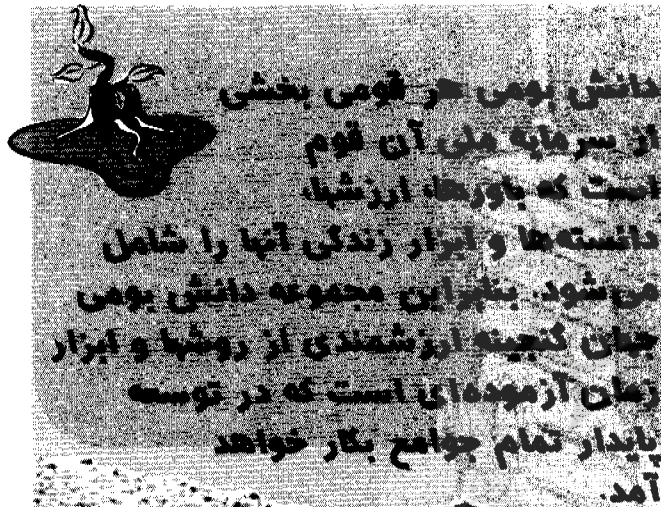 دانش بومی هر قومی بخشی
از سرمایه ملی آن قوم
است که باورها، ارزشها،
دانسته‌ها و ابزار زندگی آنها را شامل
می‌شود. بنابراین مجموعه دانش بومی
جهان گنجینه ارزشمندی از روشها و ابزار
زمان آزموده‌ای است که در توسعه
پایدار تمام جوامع بکار خواهد
آمد.